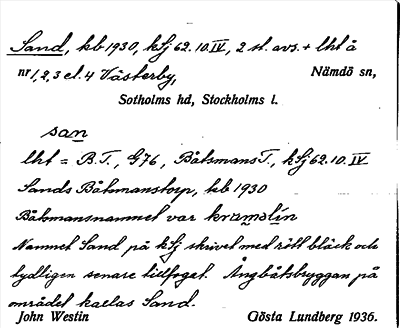 Sand, kb 1930, kSj 62.10.IV, 2 st. avs. + lht å
nr 1, 2, 3 el. 4 Västerby, Nämdö sn,
Sotholms hd, Stockholms l.
san
lht = B.T., G76, BåtsmansT., kSj 62.10.IV
Sands Båtsmanstorp, kb 1930
Båtsmansnamnet var kramslin
Namnet Sand på kSj skrivet med rött bläck och
tydligen senare tillfogat. Ångbåtsbryggan på
området kallas Sand.
John Westin Gösta Lundberg 1936.